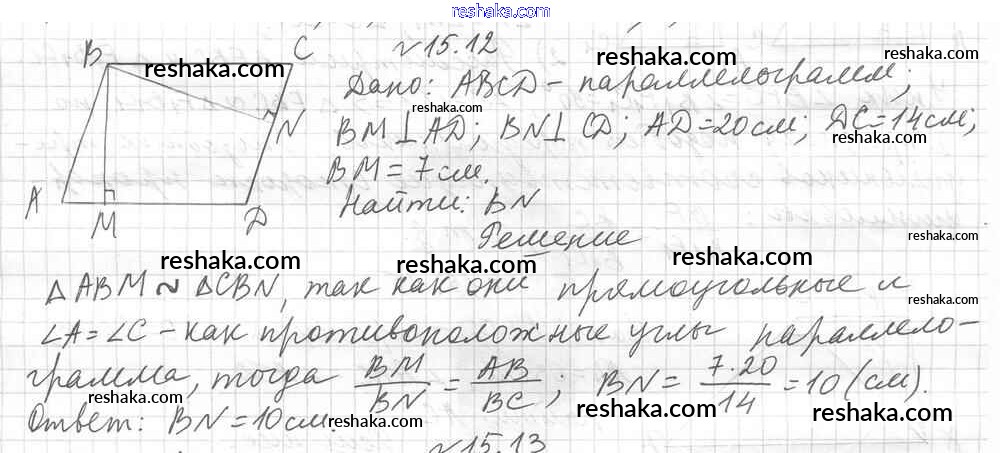 reshaka.com
B C N 15.12
reshaka.com reshaka.com
Дано: ABCD - параллелограмм;
reshaka.com
N BM ⊥ AD; BN ⊥ CD; AD = 20 см; DC = 14 см;
reshaka.com
BM = 7 см.
A M D Найти: BN
reshaka.com
Решение
reshaka.com reshaka.com reshaka.com
Δ ABM ~ Δ CBN, так как они прямоугольные и
reshaka.com
∠A = ∠C - как противоположные углы параллело-
reshaka.com
грамма, тогда BM/BN = AB/BC; BN = 7·20/14 = 10 (см).
reshaka.com reshaka.com reshaka.com
Ответ: BN = 10 см.
reshaka.com
N 15.13